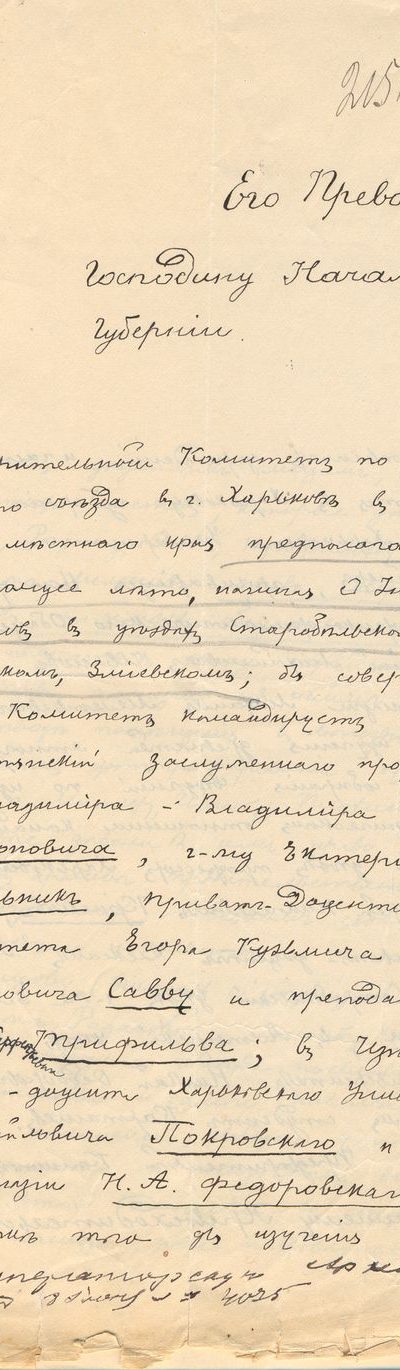 215
Его Прево
Господину Начал
Губернiи.
нительный Комитетъ по
го съѣзда въ г. Харьковѣ въ
мѣстнаго края предполага
лѣто, начиная съ
въ уѣздахъ Старобѣльско
комъ, Змiевскомъ; въ
Комитетъ командируетъ
заслуженнаго про
ладимiра - Владимiра
оновича, г-жу Екатери
льникъ, Приватъ-Доцента
тета Егора Кузьмича
овича Савву и препода
Трифильева; въ Изю
-доцента Харьковскаго Уни
йловича Покровскаго и
назiи Н. А. Федоровскаг
того для изученiя
4025